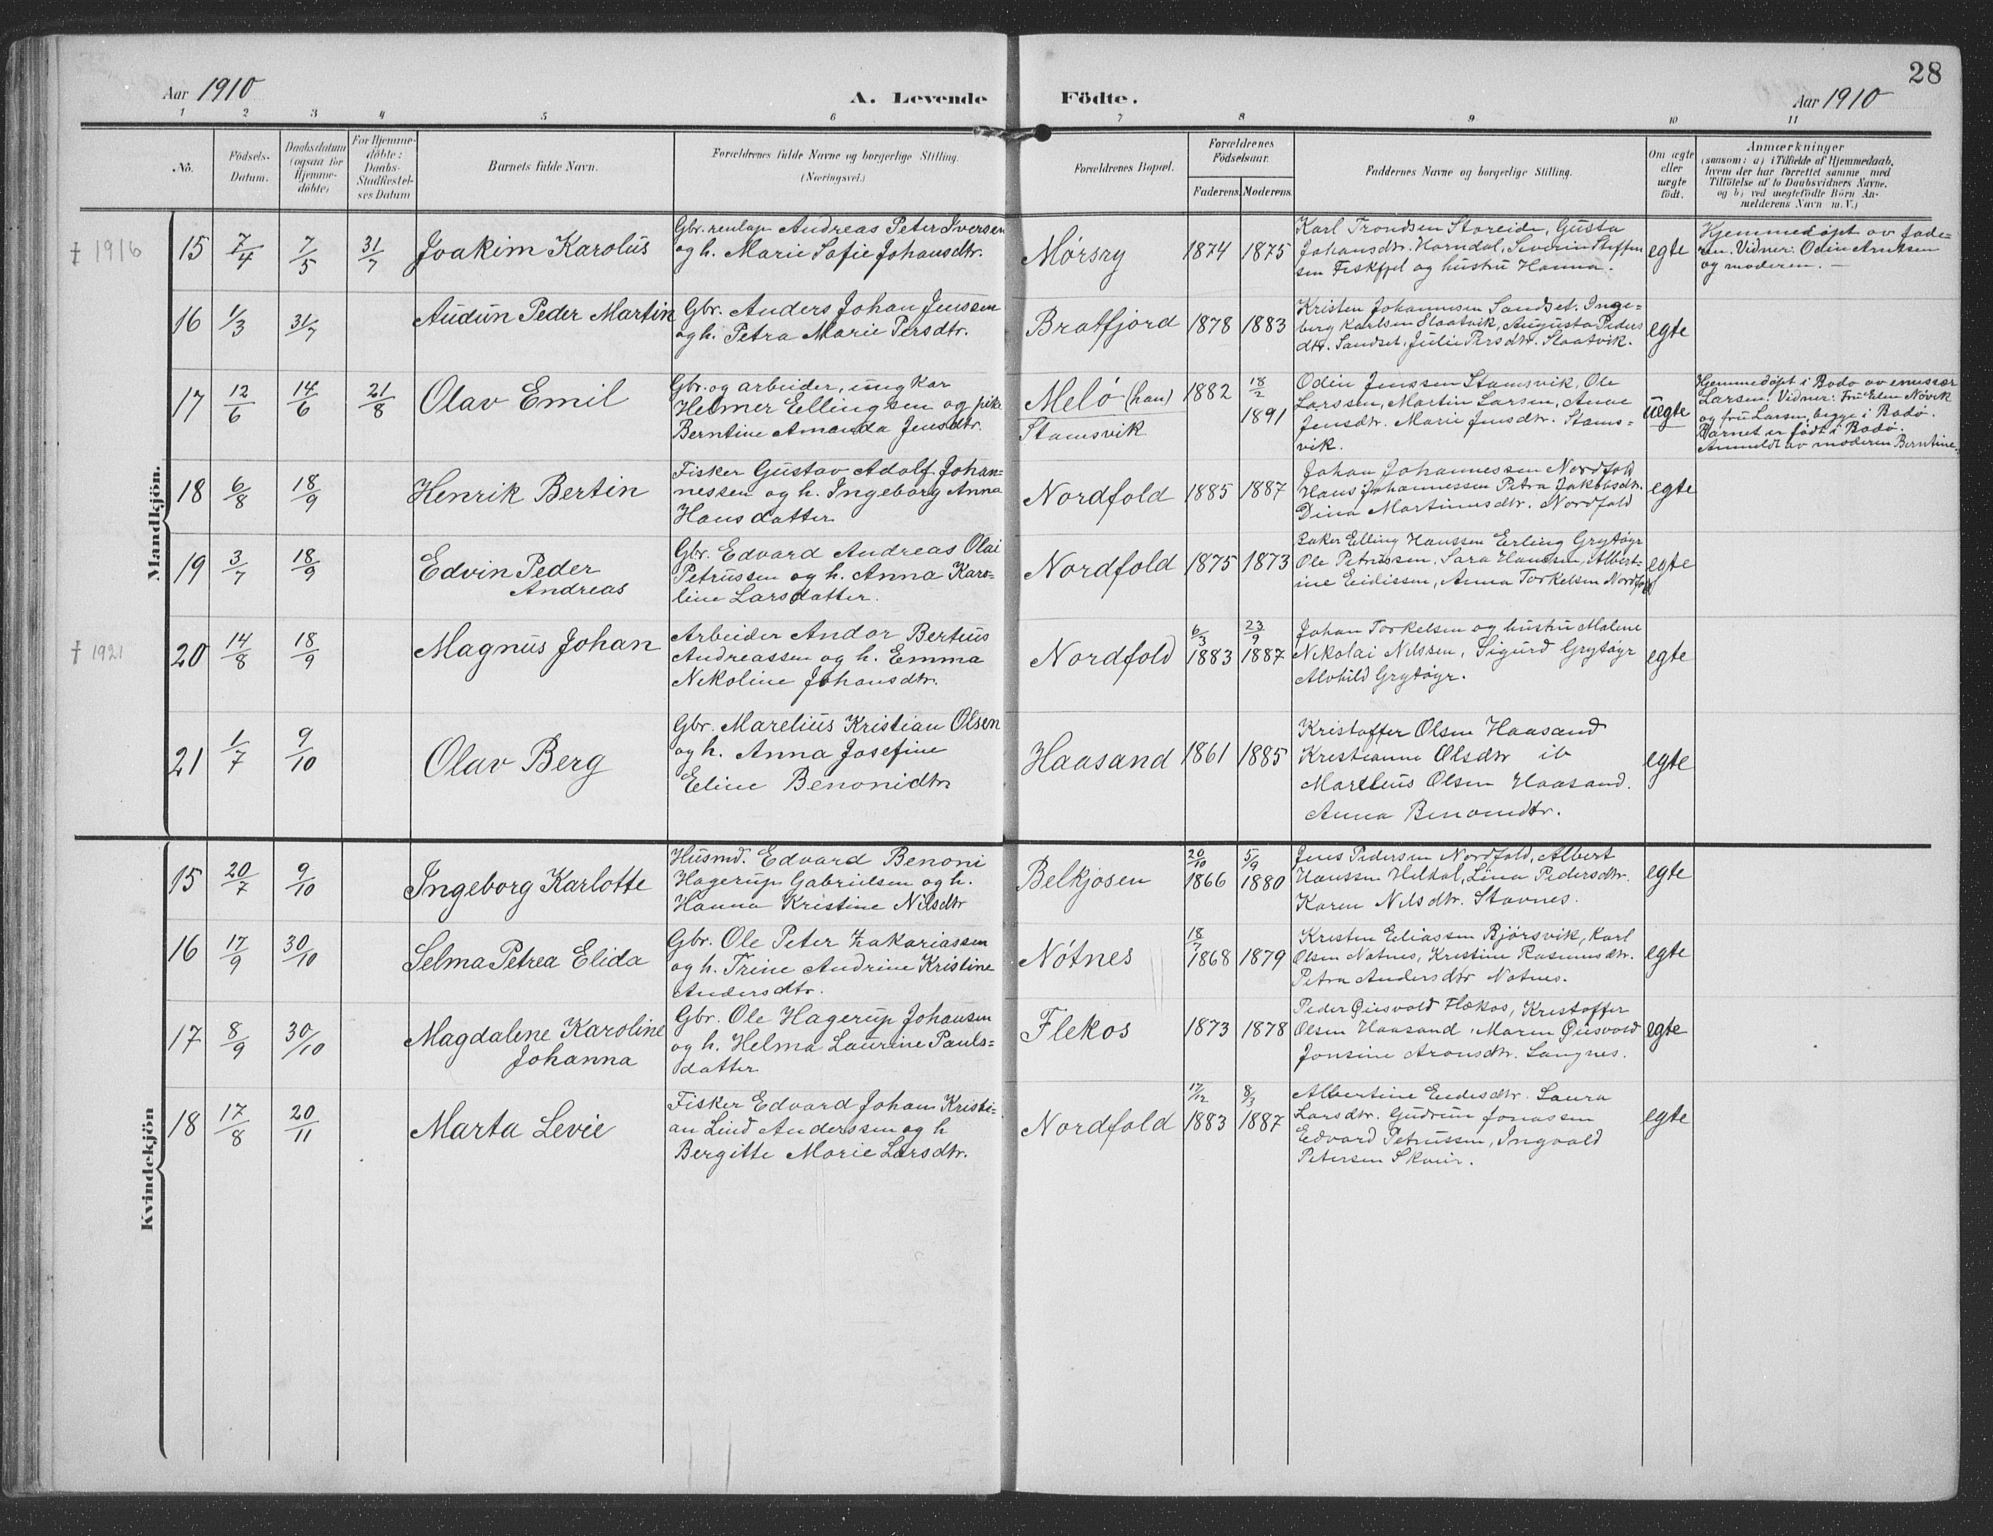 28
Aar 1910
A. Levende Födte.
Aar 1910
1 2 3 4 5 6 7 8 9 10 11
No.
Födsels-
Datum.
Daabsdatum
(ogsaa for
Hjemme-
döbte)
For Hjemme-
döbte:
Daabs-
Stadfæstel-
ses Datum
Barnets fulde Navn.
Forældrenes fulde Navne og borgerlige Stilling.
(Næringsvei.)
Forældrenes Bopæl.
Forældrenes
Födselsaar.
Faderens. Moderens.
Faddernes Navne og borgerlige Stilling.
Om ægte
eller
uægte
födt.
Anmærkninger
(saasom: a) i Tilfælde af Hjemmedaab,
hvem der har forrettet samme med
Tilföielse af to Daabsvidners Navne,
og b) ved uegtefödte Börn An-
melderens Navn m. V.)
Mandkjön.
† 1916
15 7/4 7/5 31/7 Joakim Karolus
Gbr. renlap Andreas Peter Iversen
og h. Marie Sofie Johansdtr.
Mørsry 1874 1875
Karl Trondsen Storeide, Gusta
Johansdtr. Horndal, Severin Steffen
sen Fiskfjel og hustru Hanna.
egte
Hjemmedøpt av fade-
ren. Vidner: Odin Arntsen
og moderen. —
16 1/3 31/7 Audun Peder Martin
Gbr. Anders Johan Jenssen
og h. Petra Marie Persdtr.
Bratfjord 1878 1883
Kristen Johannesen Sandset. Inge-
berg Karlsen Slaatvik, Augusta Peders
dtr. Sandset, Julie Persdtr. Slaatvik.
egte
17 12/6 14/6 21/8 Olav Emil
Gbr. og arbeider, ungkar
Helmer Ellingsen og pike
Berntine Amanda Jensdtr.
Melö (han)
Stamsvik
1882 18/2 1891
Odin Jenssen Stamsvik, Ole
Larssen, Martin Larsen, Anne
Jensdtr. Marie Jensdtr. Stams-
vik.
uegte
Hjemmedøpt i Bodø av emissær
Larsen. Vidner: Fru Elen Növik
og fru Larsen, begge i Bodø.
Barnet er født i Bodø.
Anmeldt av moderen Berntine.
18 6/8 18/9 Henrik Bertin
Fisker Gustav Adolf Johan-
nessen og h. Ingeborg Anna
Hansdatter
Nordfold 1885 1887
Johan Johannessen Nordfold
Hans Johannessen Petra Jakobsdtr.
Dina Martinusdtr. Nordfold
egte
19 3/7 18/9 Edvin Peder
Andreas
Gbr. Edvard Andreas Olai
Petrussen og h. Anna Karo-
line Larsdatter.
Nordfold 1875 1873
Elling Hanssen Erling Grytøyr
Ole Petrussen, Sara Hansen, Albert-
ine Eidissen, Anna Torkelsen Nordfold
egte
† 1921
20 14/8 18/9 Magnus Johan
Arbeider Andor Bertius
Andreassen og h. Emma
Nikoline Johansdtr.
Nordfold 6/3 1883 23/9 1887
Johan Torkelsen og hustru Malene
Nikolai Nilssen, Sigurd Grytøyr
Alvhild Grytøyr.
egte
21 1/7 9/10 Olav Berg
Gbr. Marelius Kristian Olsen
og h. Anna Josefine
Eline Benonidtr
Haasand 1861 1885
Kristoffer Olsen Haasand
Kristianne Olsdtr ib
Marelius Olsen Haasand.
Anna Benonidtr.
egte
Kvindekjön
15 20/7 9/10 Ingeborg Karlotte
Husmd. Edvard Benoni
Hagerup Gabrielsen og h.
Hanna Kristine Nilsdtr
Belkjosen 20/10 1866 5/9 1880
Jens Pedersen Nordfold, Albert
Hanssen Heldal, Lina Pedersdtr.
Karen Nilsdtr. Stavnes.
egte
16 17/9 30/10 Selma Petrea Elida
Gbr. Ole Peter Zakariassen
og h. Trine Andrine Kristine
Andersdtr.
Nötnes 18/7 1868 1879
Kristen Eliassen Bjørsvik, Karl
Olsen Nøtnes, Kristine Rasmusdtr.
Petra Andersdtr Nøtnes.
egte
17 8/9 30/10 Magdalene Karoline
Johanna
Gbr. Ole Hagerup Johansen
og h. Helma Laurine Pauls-
datter
Flekos 1873 1878
Peder Quisvold Flekos, Kristoffer
Olsen Haasand, Maren Quisvold
Jonsine Aronsdtr. Langnes.
egte
18 17/8 20/11 Marta Levie
Fisker Edvard Johan Kristi-
an Lind Anderssen og h
Bergitte Marie Larsdtr.
Nordfold 17/12 1883 8/3 1887
Albertine Endesdtr. Laura
Larsdtr. Gudrun Jonassen
Edvard Petrussen, Ingvald
Petersen Skeir.
egte